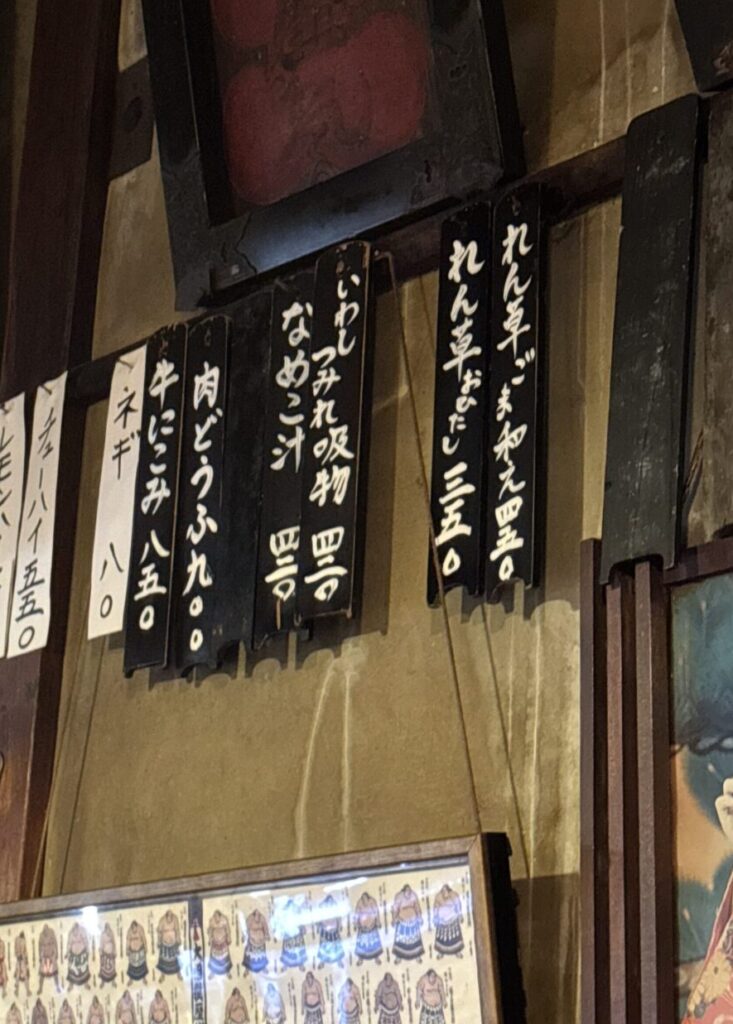 れん草ごま和え 四五〇
れん草おひたし 三五〇
いわしつみれ吸物 四三〇
なめこ汁 四三〇
肉どうふ 九〇〇
牛にこみ 八五〇
ネギ 八〇
チューハイ 五五〇
レモンハ